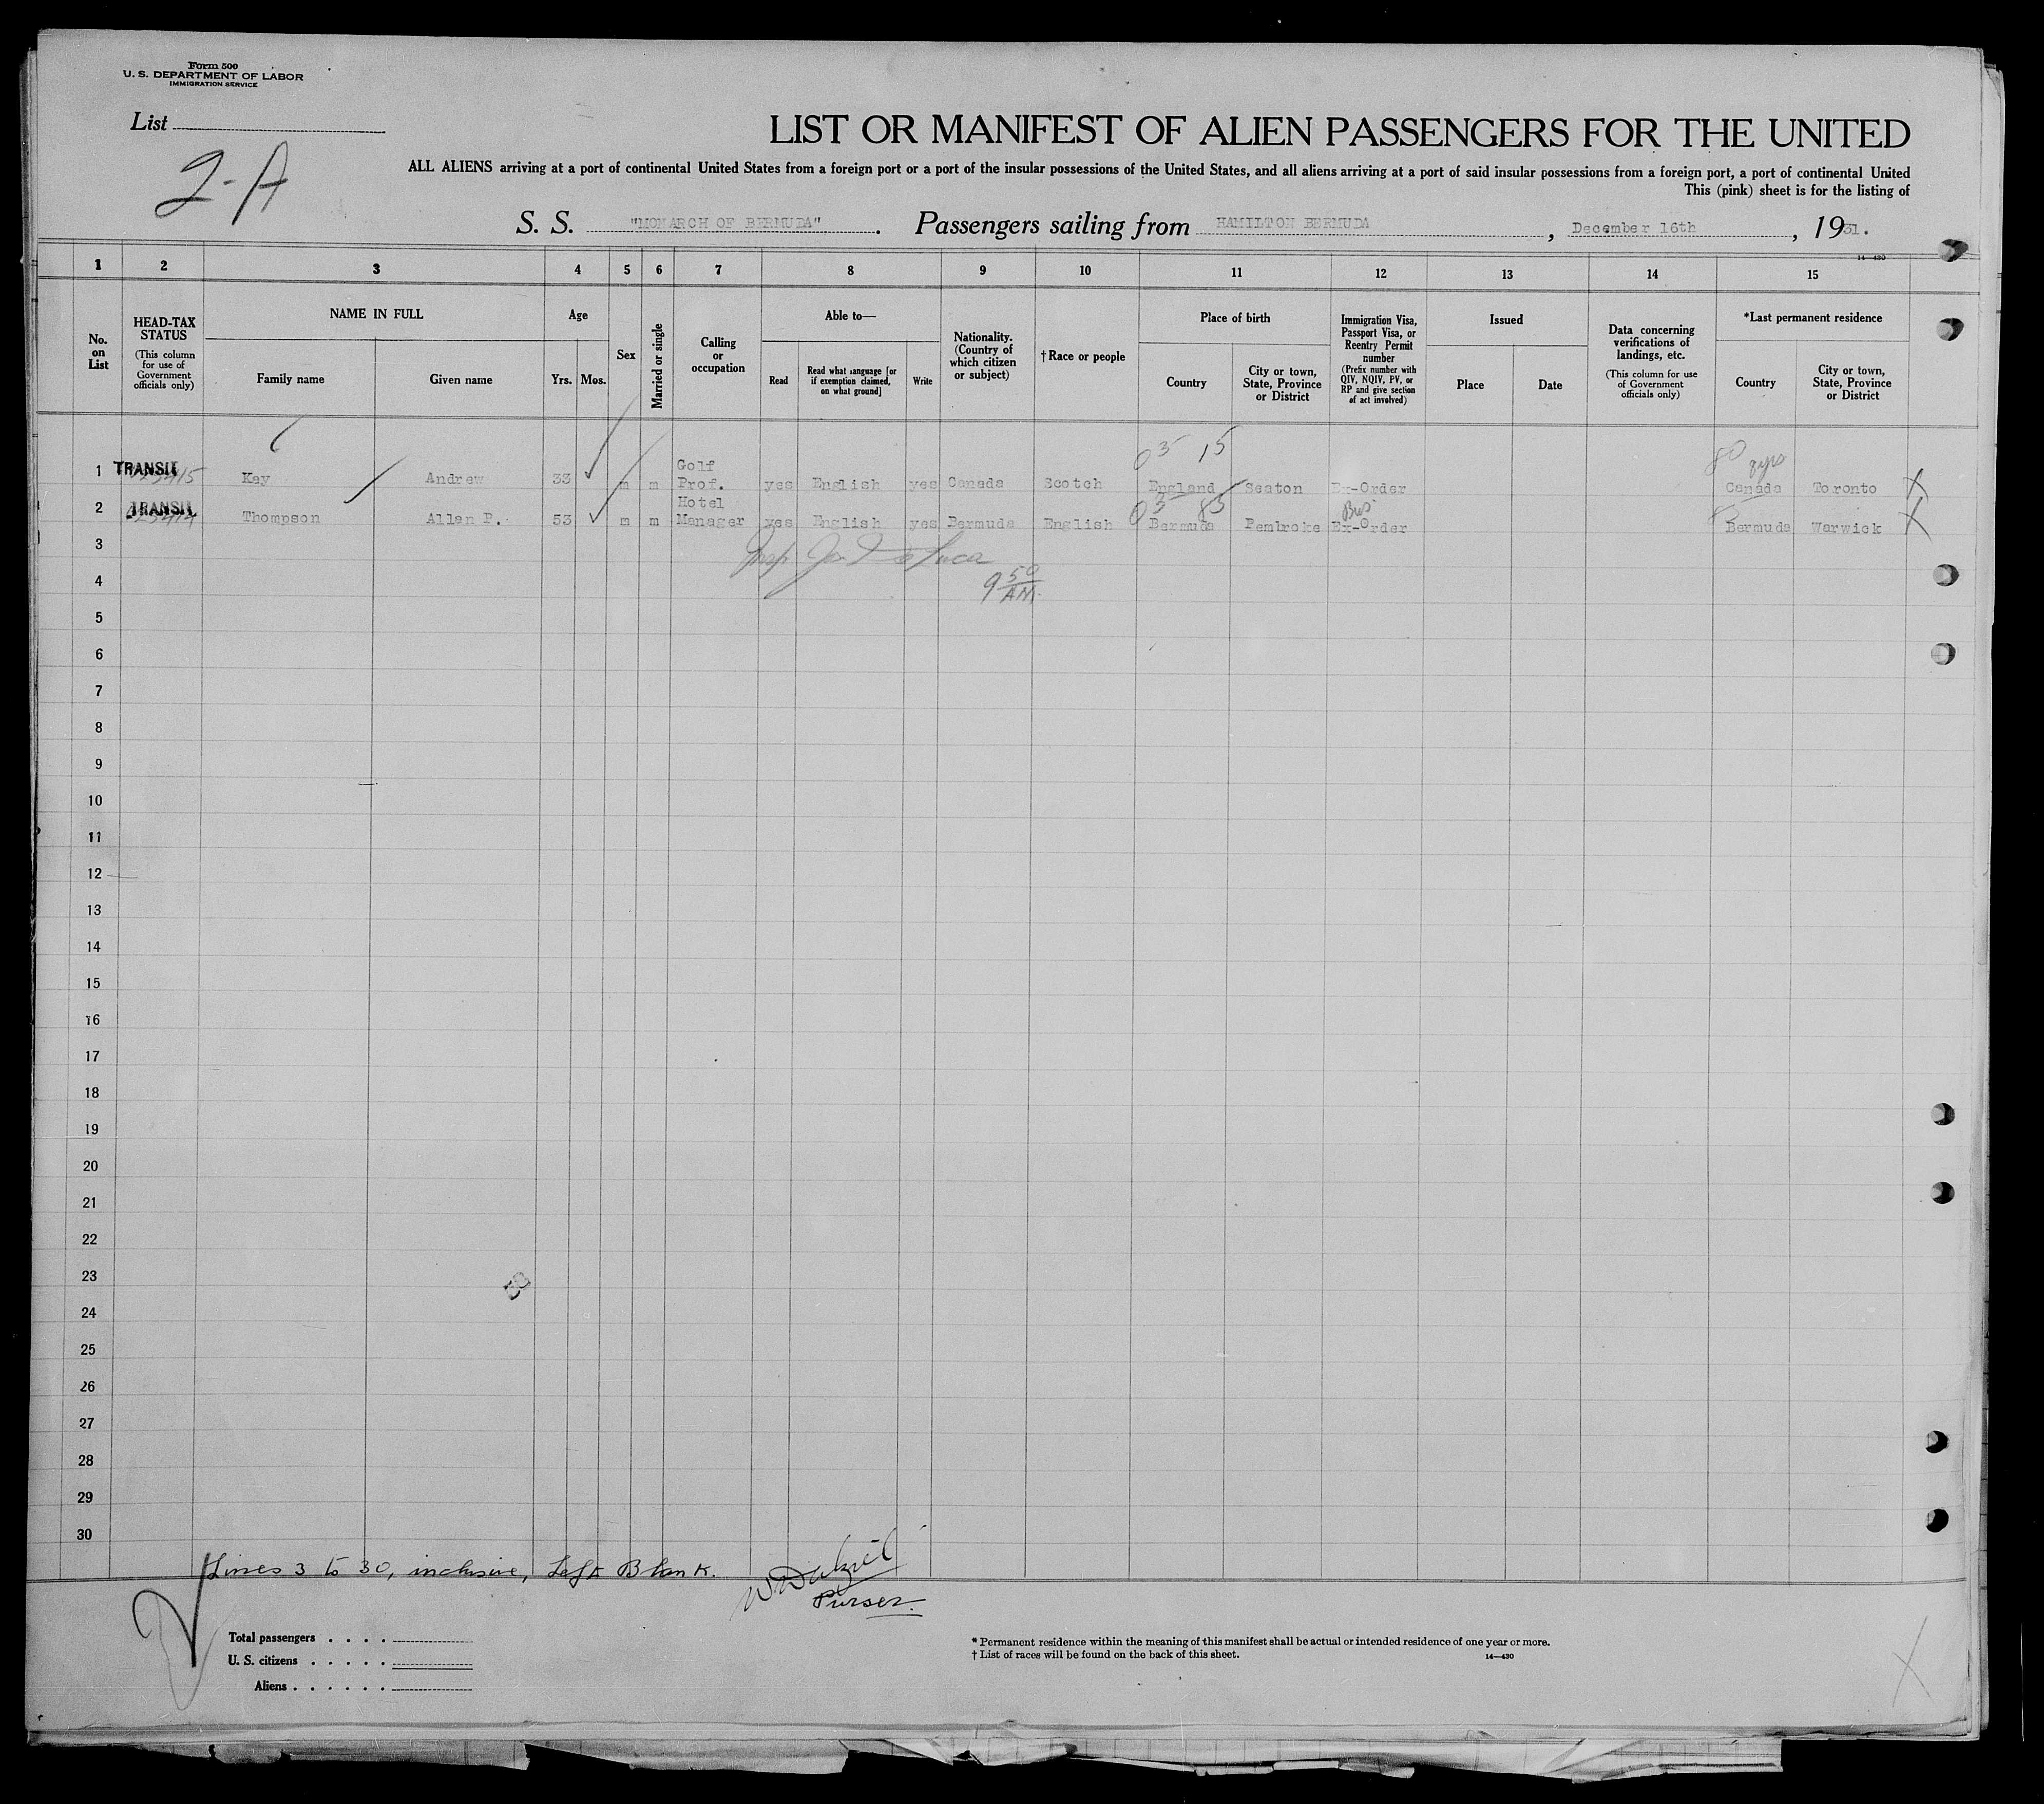 Form 500
U. S. DEPARTMENT OF LABOR
IMMIGRATION SERVICE
List
2-A
LIST OR MANIFEST OF ALIEN PASSENGERS FOR THE UNITED
ALL ALIENS arriving at a port of continental United States from a foreign port or a port of the insular possessions of the United States, and all aliens arriving at a port of said insular possessions from a foreign port, a port of continental United
This (pink) sheet is for the listing of
S. S. "MONARCH OF BERMUDA". Passengers sailing from HAMILTON BERMUDA, December 16th, 1931.
14—430
1 2 3 4 5 6 7 8 9 10 11 12 13 14 15
No. on List
HEAD-TAX STATUS
(This column for use of Government officials only)
NAME IN FULL
Family name
Given name
Age
Yrs.
Mos.
Sex
Married or single
Calling or occupation
Able to—
Read
Read what language [or if exemption claimed, on what ground]
Write
Nationality. (Country of which citizen or subject)
†Race or people
Place of birth
Country
City or town, State, Province or District
Immigration Visa, Passport Visa, or Reentry Permit number
(Prefix number with QIV, NQIV, PV, or RP and give section of act involved)
Issued
Place
Date
Data concerning verifications of landings, etc.
(This column for use of Government officials only)
*Last permanent residence
Country
City or town, State, Province or District
03 15 80 9yrs
1 TRANSIT Kay Andrew 33 m m Golf Prof. yes English yes Canada Scotch England Seaton Ex-Order Canada Toronto X
03 83
2 TRANSIT Thompson Allan P. 53 m m Hotel Manager yes English yes Bermuda English Bermuda Pembroke Ex-Order Bermuda Warwick X
3
4
9 50 AM.
5
6
7
8
9
10
11
12
13
14
15
16
17
18
19
20
21
22
23
24
25
26
27
28
29
30
Lines 3 to 30, inclusive, Left Blank.
Purser.
Total passengers . . . .
U. S. citizens . . . . .
Aliens . . . . . .
* Permanent residence within the meaning of this manifest shall be actual or intended residence of one year or more.
† List of races will be found on the back of this sheet.
14—430
X